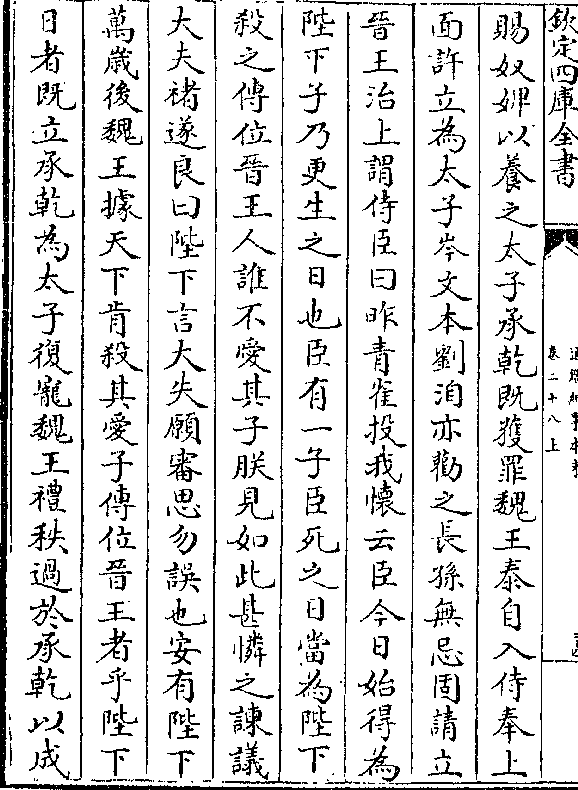 欽定四庫全書
卷二十八上
賜奴婢以養之太子承乾既獲罪魏王泰自入侍奉上
面許立為太子岑文本劉洎亦勸之長孫無忌固請立
晉王治上謂侍臣曰昨青雀投我懷云臣今日始得為
陛下子乃更生之日也臣有一子臣死之日當為陛下
殺之傳位晉王人誰不愛其子朕見如此甚憐之諫議
大夫褚遂良曰陛下言大失願審思勿誤也安有陛下
萬歲後魏王據天下肯殺其愛子傳位晉王者乎陛下
日者既立承乾為太子復寵魏王禮秩過於承乾以成